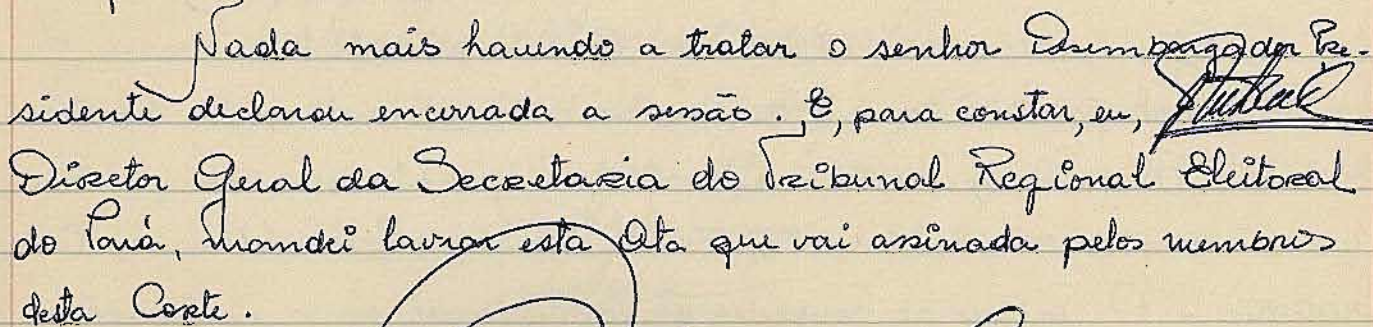 Nada mais havendo a tratar o senhor Desembargador Pre-
sidente declarou encerrada a sessão. E, para constar, eu,
Diretor Geral da Secretaria do Tribunal Regional Eleitoral
do Pará, mandei lavrar esta Ata que vai assinada pelos membros
desta Corte.